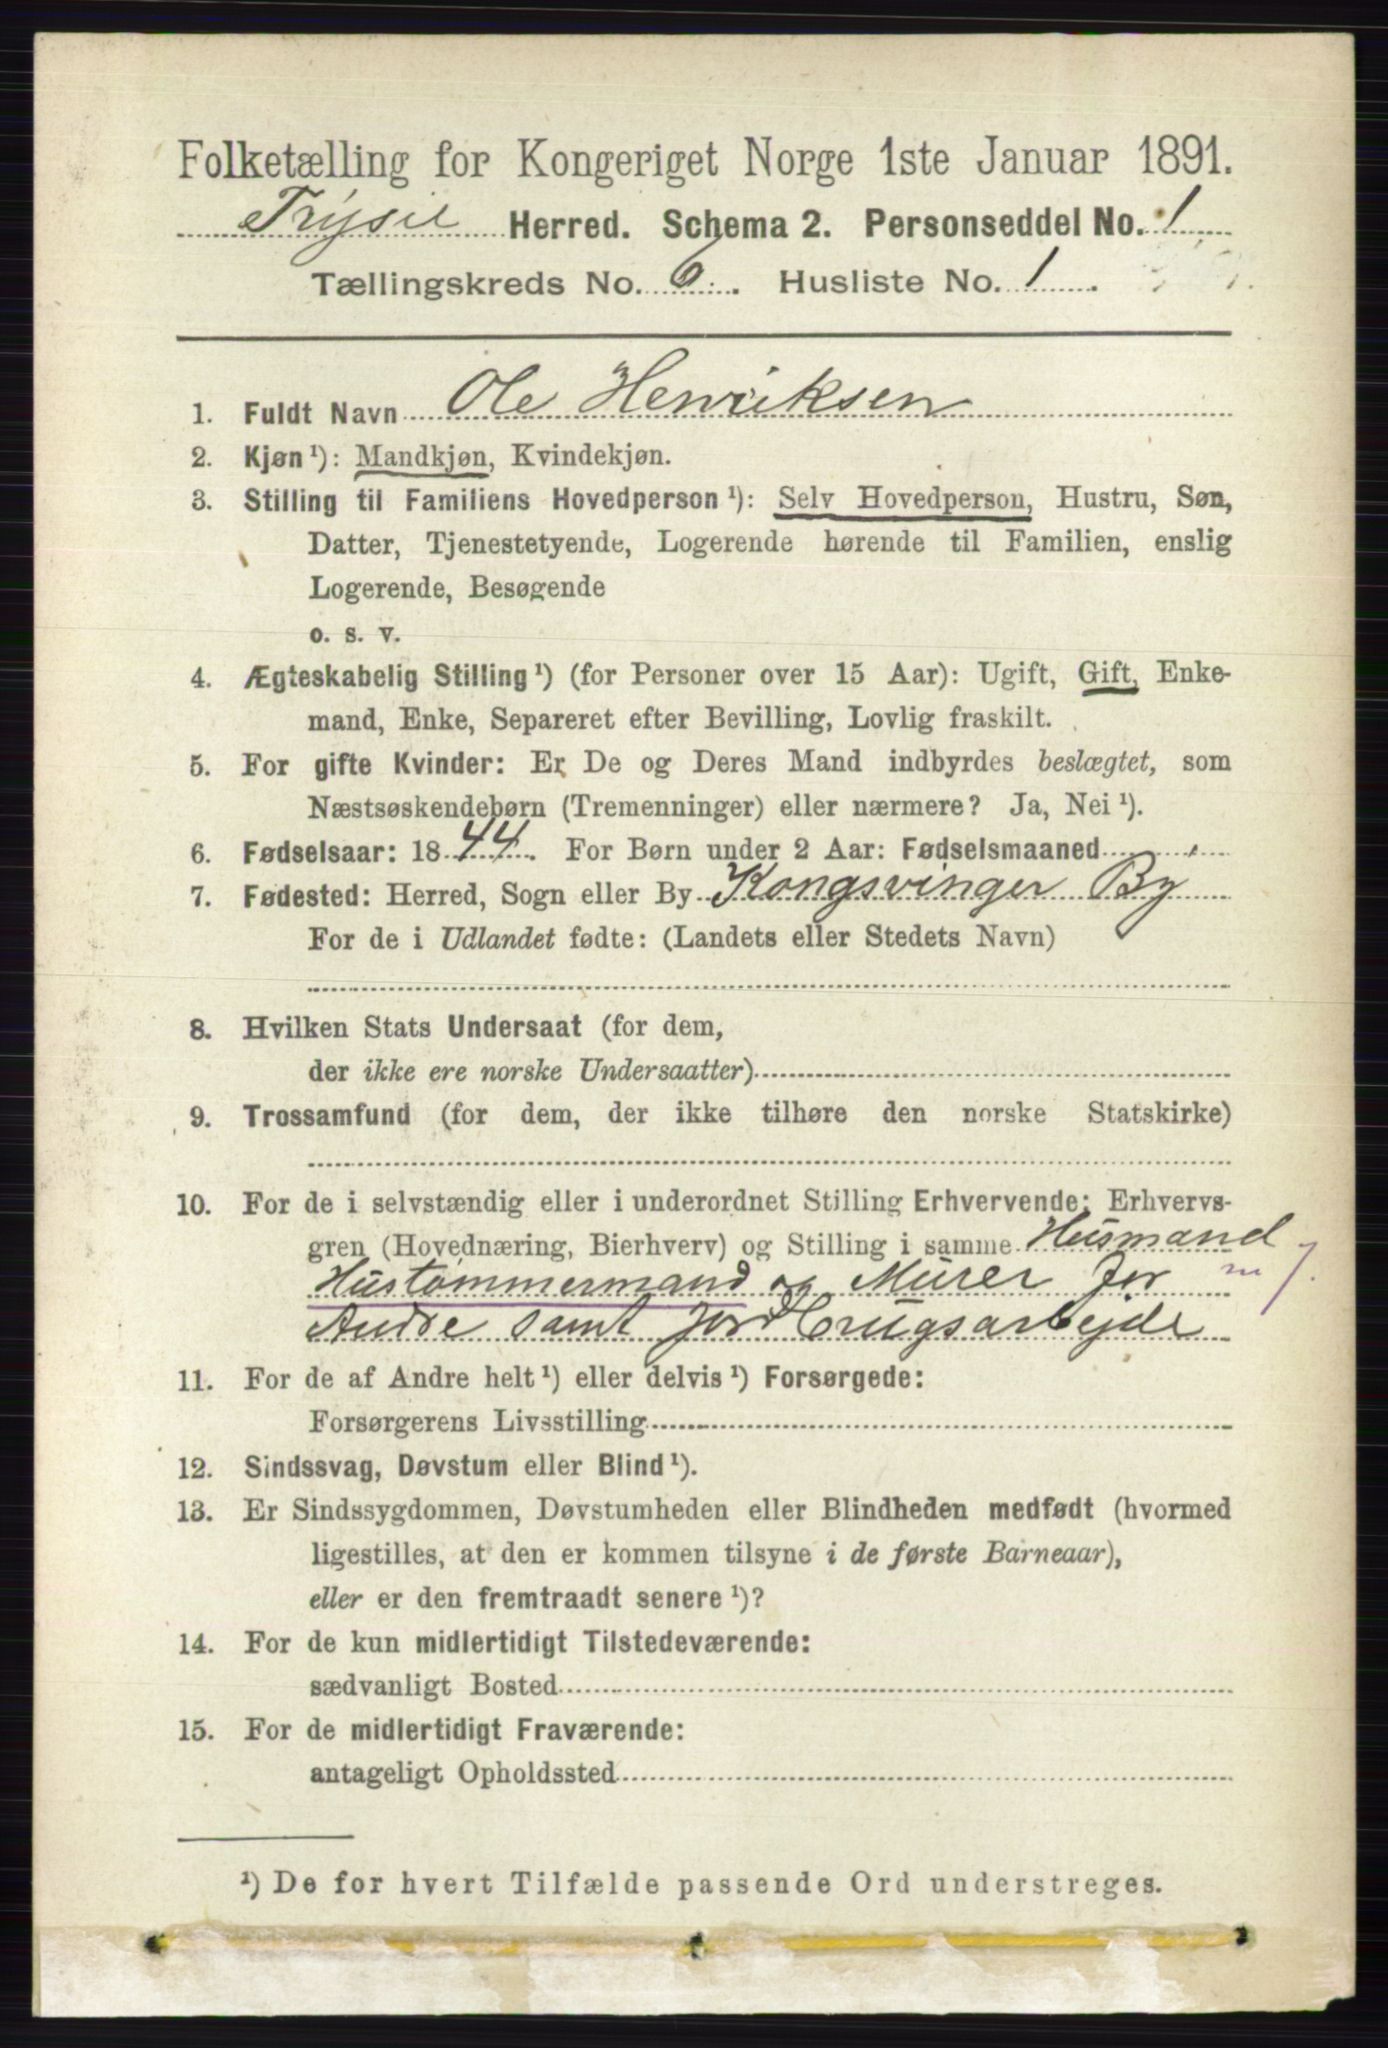 Folketælling for Kongeriget Norge 1ste Januar 1891.
Trysil Herred. Schema 2. Personseddel No. 1
Tællingskreds No. 6. Husliste No. 1.
1. Fuldt Navn Ole Henriksen
2. Kjøn ¹): Mandkjøn, Kvindekjøn.
3. Stilling til Familiens Hovedperson ¹): Selv Hovedperson, Hustru, Søn,
Datter, Tjenestetyende, Logerende hørende til Familien, enslig
Logerende, Besøgende
o. s. v.
4. Ægteskabelig Stilling ¹) (for Personer over 15 Aar): Ugift, Gift, Enke-
mand, Enke, Separeret efter Bevilling, Lovlig fraskilt.
5. For gifte Kvinder: Er De og Deres Mand indbyrdes beslægtet, som
Næstsøskendebørn (Tremenninger) eller nærmere? Ja, Nei ¹).
6. Fødselsaar: 1844. For Børn under 2 Aar: Fødselsmaaned
7. Fødested: Herred, Sogn eller By Kongsvinger By
For de i Udlandet fødte: (Landets eller Stedets Navn)
8. Hvilken Stats Undersaat (for dem,
der ikke ere norske Undersaatter)
9. Trossamfund (for dem, der ikke tilhøre den norske Statskirke)
10. For de i selvstændig eller i underordnet Stilling Erhvervende: Erhvervs-
gren (Hovednæring, Bierhverv) og Stilling i samme Husmand
Hustømmermand og Murer for
Andre samt Jordbrugsarbejde
11. For de af Andre helt ¹) eller delvis ¹) Forsørgede:
Forsørgerens Livsstilling
12. Sindssvag, Døvstum eller Blind ¹).
13. Er Sindssygdommen, Døvstumheden eller Blindheden medfødt (hvormed
ligestilles, at den er kommen tilsyne i de første Barneaar),
eller er den fremtraadt senere ¹)?
14. For de kun midlertidigt Tilstedeværende:
sædvanligt Bosted
15. For de midlertidigt Fraværende:
antageligt Opholdssted
¹) De for hvert Tilfælde passende Ord understreges.